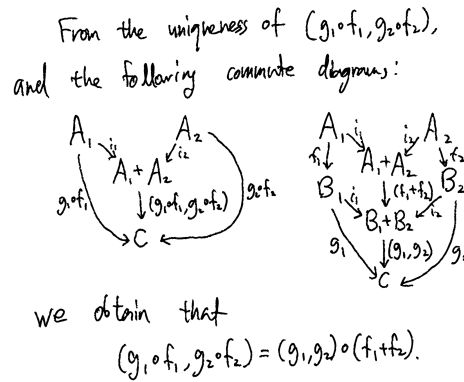 From the uniqueness of (g₁∘f₁, g₂∘f₂),
and the following commute diagrams:
A₁ A₂ A₁ A₂
i₁ i₂ i₁ i₂
A₁+A₂ f₁ A₁+A₂ f₂
g₁∘f₁ (g₁∘f₁, g₂∘f₂) g₂∘f₂ B₁ i₁ (f₁+f₂) i₂ B₂
B₁+B₂
C g₁ (g₁,g₂) g₂
C
we obtain that
(g₁∘f₁, g₂∘f₂) = (g₁,g₂)∘(f₁+f₂).